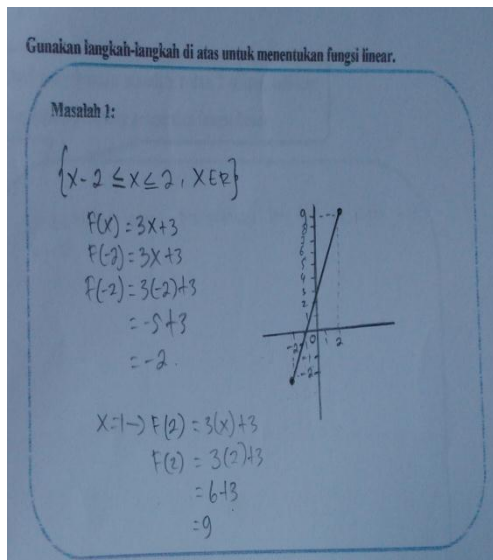 Gunakan langkah-langkah di atas untuk menentukan fungsi linear.
Masalah 1:
{x-2 ≤ x ≤ 2, x ∈ R}
F(x) = 3x+3
F(-2) = 3x+3
F(-2) = 3(-2)+3
= -5+3
= -2.
x=1→ F(2) = 3(x)+3
F(2) = 3(2)+3
= 6+3
= 9
9
8
7
6
5
4
3
2
1
-2 0 1 2
-1
-2